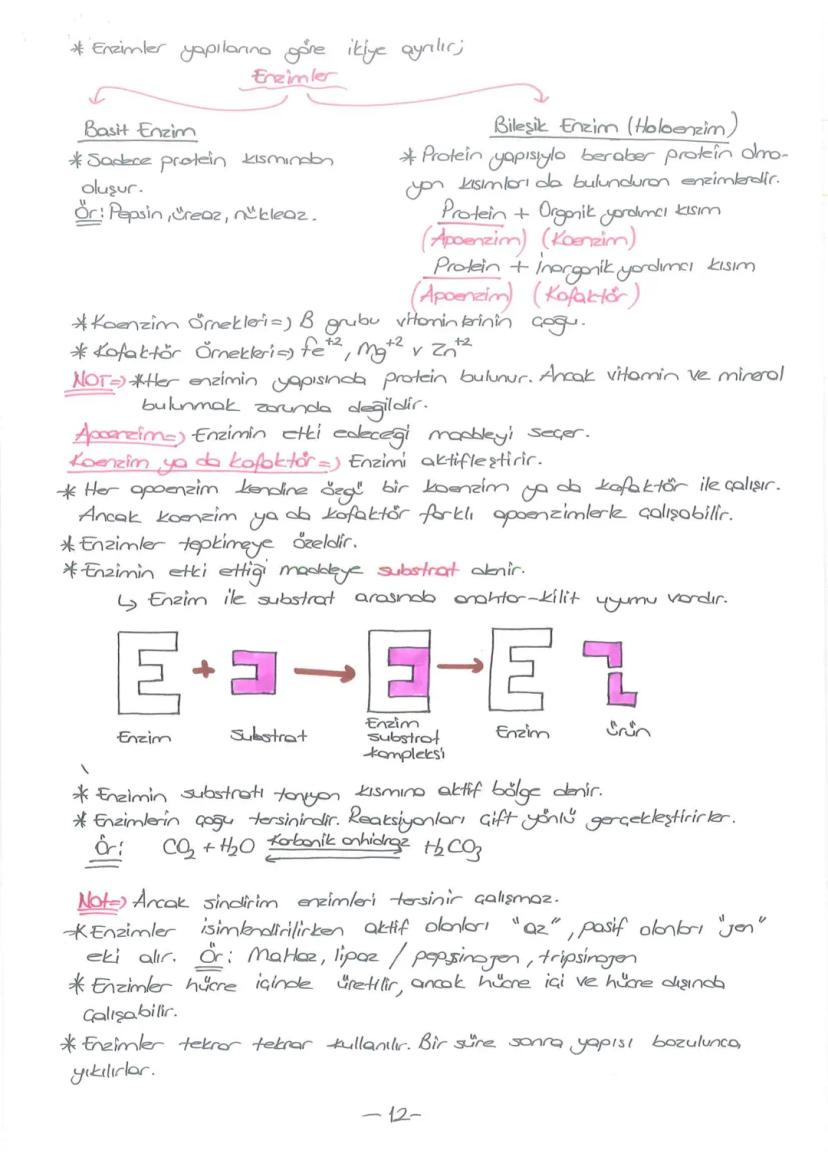 * Enzimler yapılarına göre ikiye ayrılır;
Enzimler
Basit Enzim
* Sadece protein kısmından
oluşur.
Ör: Pepsin, üreaz, nükleaz.
Bileşik Enzim (Holoenzim)
* Protein yapısıyla beraber protein olma-
yan kısımları da bulunduran enzimlerdir.
Protein + Organik yardımcı kısım
(Apoenzim) (Koenzim)
Protein + İnorganik yardımcı kısım
(Apoenzim) (Kofaktör)
* Koenzim Örnekleri=) B grubu vitaminlerinin çoğu.
* Kofaktör Örnekleri=) Fe+2, Mg+2 v Zn+2
NOT=) * Her enzimin yapısında protein bulunur. Ancak vitamin ve mineral
bulunmak zorunda değildir.
Apoenzim=) Enzimin etki edeceği maddeyi seçer.
Koenzim ya da kofaktör=) Enzimi aktifleştirir.
* Her apoenzim kendine özgü bir koenzim ya da kofaktör ile çalışır.
Ancak koenzim ya da kofaktör farklı apoenzimlerle çalışabilir.
* Enzimler tepkimeye özeldir.
* Enzimin etki ettiği maddeye substrat denir.
↳ Enzim ile substrat arasında anahtar-kilit uyumu vardır.
+
Enzim
Substrat
Enzim
substrat
kompleksi
Enzim
Ürün
* Enzimin substratı tanıyan kısmına aktif bölge denir.
* Enzimlerin çoğu tersinirdir. Reaksiyonları çift yönlü gerçekleştirirler.
Ör: CO2 + H2O Karbonik anhidraz H2CO3
Not=) Ancak sindirim enzimleri tersinir çalışmaz.
* Enzimler isimlendirilirken aktif olanları "az", pasif olanları "jen"
eki alır. Ör: Maltaz, lipaz / pepsinojen, tripsinojen
* Enzimler hücre içinde üretilir, ancak hücre içi ve hücre dışında
çalışabilir.
* Enzimler tekrar tekrar kullanılır. Bir süre sonra yapısı bozulunca,
yıkılırlar.
-12-